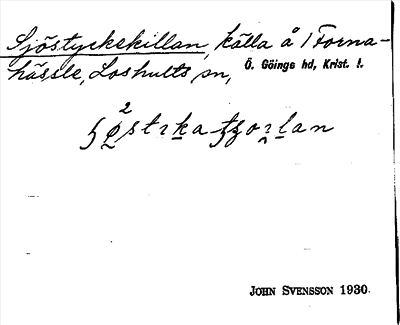 Sjöstyckekillan, källa å 1 Forna-
hässle, Loshults sn, Ö. Göinge hd, Krist. l.
John Svensson 1930.